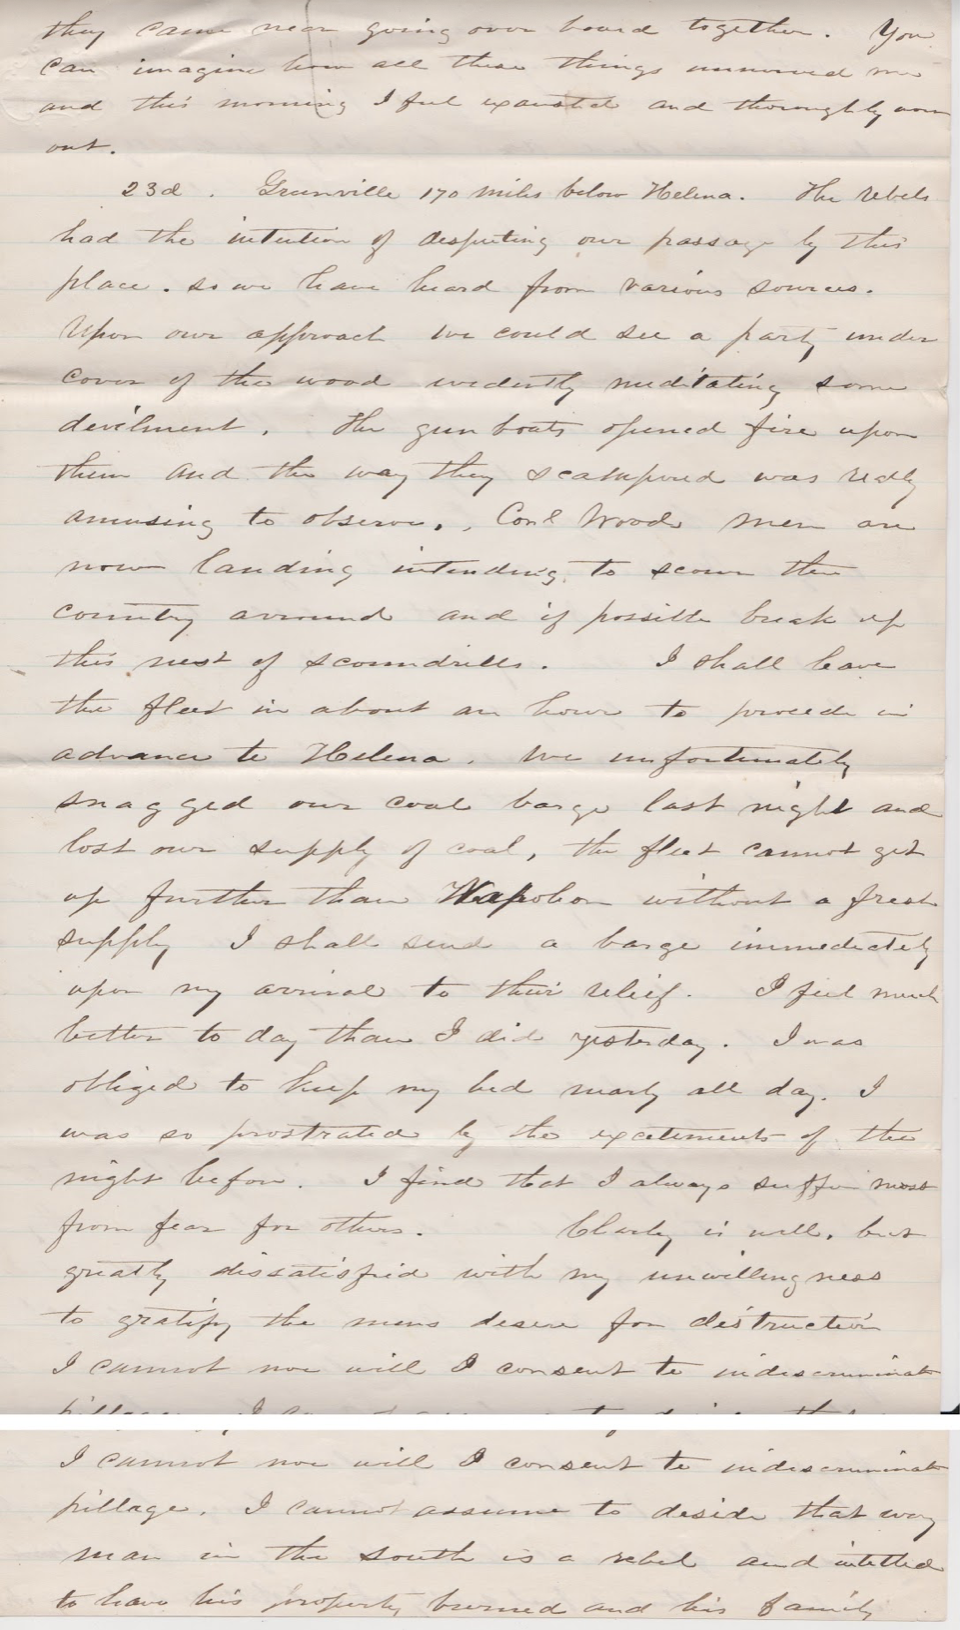 they came near going over board together. You
can imagine how all these things unnerved me
and this morning I feel exausted and thoroughly worn
out.
23d. Greenville 170 miles below Helena. The rebels
had the intention of desputing our passage by this
place. so we have heard from various sources.
Upon our approach we could see a party under
cover of the wood evidently meditating some
devilment. The gun boats opened fire upon
them and the way they scampered was really
amusing to observe. Conl Woods men are
now landing intending to scour the
country arround and if possible break up
this nest of scoundrells. I shall leave
the fleet in about an hour to procede in
advance to Helena. We unfortunately
snagged our coal barge last night and
lost our supply of coal, the fleet cannot get
up further than Napoleon without a fresh
supply I shall send a barge immediately
upon my arrival to their relief. I feel much
better to day than I did yesterday. I was
obliged to keep my bed nearly all day. I
was so prostrated by the excitements of the
night before. I find that I always suffer most
from fear for others. Charly is well, but
greatly dissatisfied with my unwillingness
to gratify the mens desire for destruction
I cannot nor will I consent to indiscriminate
pillage. I
I cannot nor will I consent to indiscriminate
pillage. I cannot assume to deside that every
man in the south is a rebel and intitled
to have his property burned and his family